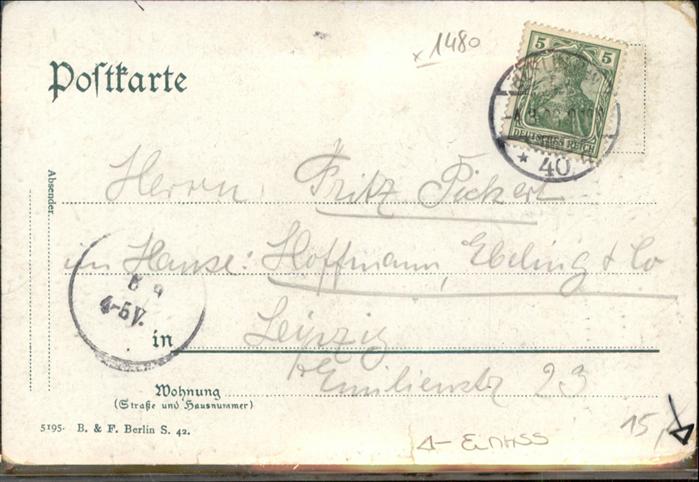 x 1480
5 5
DEUTSCHES REICH
* 40
Postkarte
Absender.
Herrn Fritz Pickert
im Hause: Hoffmann, Ebeling & Co
4-5V.
in Leipzig
Emilienstr 23
Wohnung
(Straße und Hausnummer)
15,
5195. B. & F. Berlin S. 42.